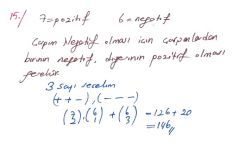 15./ 7=pozitif 6=negatif
Çarpım Negatif olması için çarpanlardan
birinin negatif, diğerinin pozitif olması
gerekir.
3 sayı seçelim
(+ + -), (- - -)
(7 2).(6 1) + (6 3) = 126 + 20
= 146//